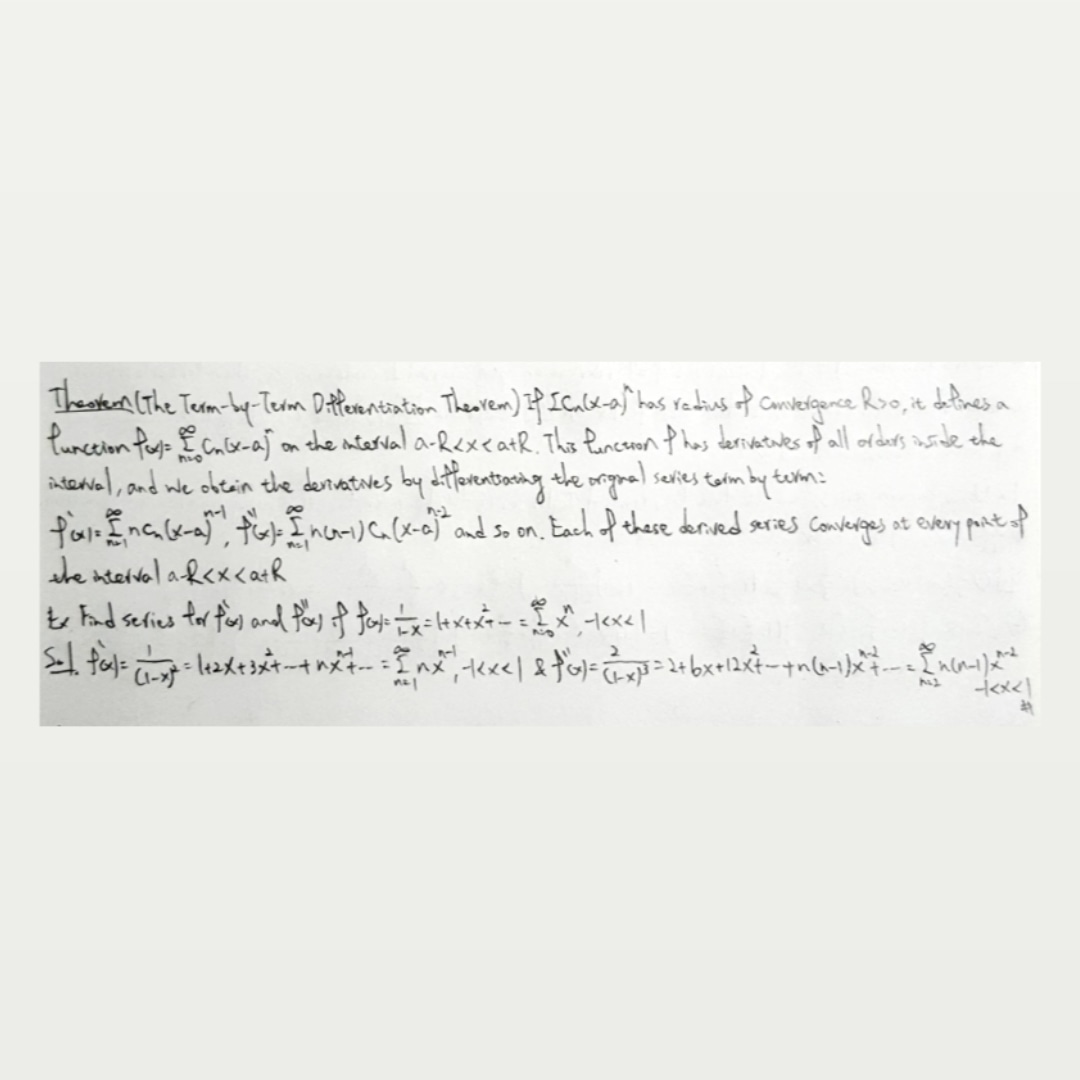 Theorem (The Term-by-Term Differentiation Theorem) If ΣCn(x-a)^n has radius of convergence R>0, it defines a
function f(x)= Σ_{n=0}^{∞} Cn(x-a)^n on the interval a-R<x<a+R. This function f has derivatives of all orders inside the
interval, and we obtain the derivatives by differentiating the original series term by term:
f'(x)= Σ_{n=1}^{∞} nCn(x-a)^{n-1}, f''(x)= Σ_{n=1}^{∞} n(n-1)Cn(x-a)^{n-2} and so on. Each of these derived series converges at every point of
the interval a-R<x<a+R
Ex Find series for f'(x) and f''(x) if f(x)= 1/(1-x) = 1+x+x^2+... = Σ_{n=0}^{∞} x^n, -1<x<1
Sol. f'(x)= 1/(1-x)^2 = 1+2x+3x^2+...+nx^{n-1}+... = Σ_{n=1}^{∞} nx^{n-1}, -1<x<1 & f''(x)= 2/(1-x)^3 = 2+6x+12x^2+...+n(n-1)x^{n-2}+... = Σ_{n=2}^{∞} n(n-1)x^{n-2}
-1<x<1
#